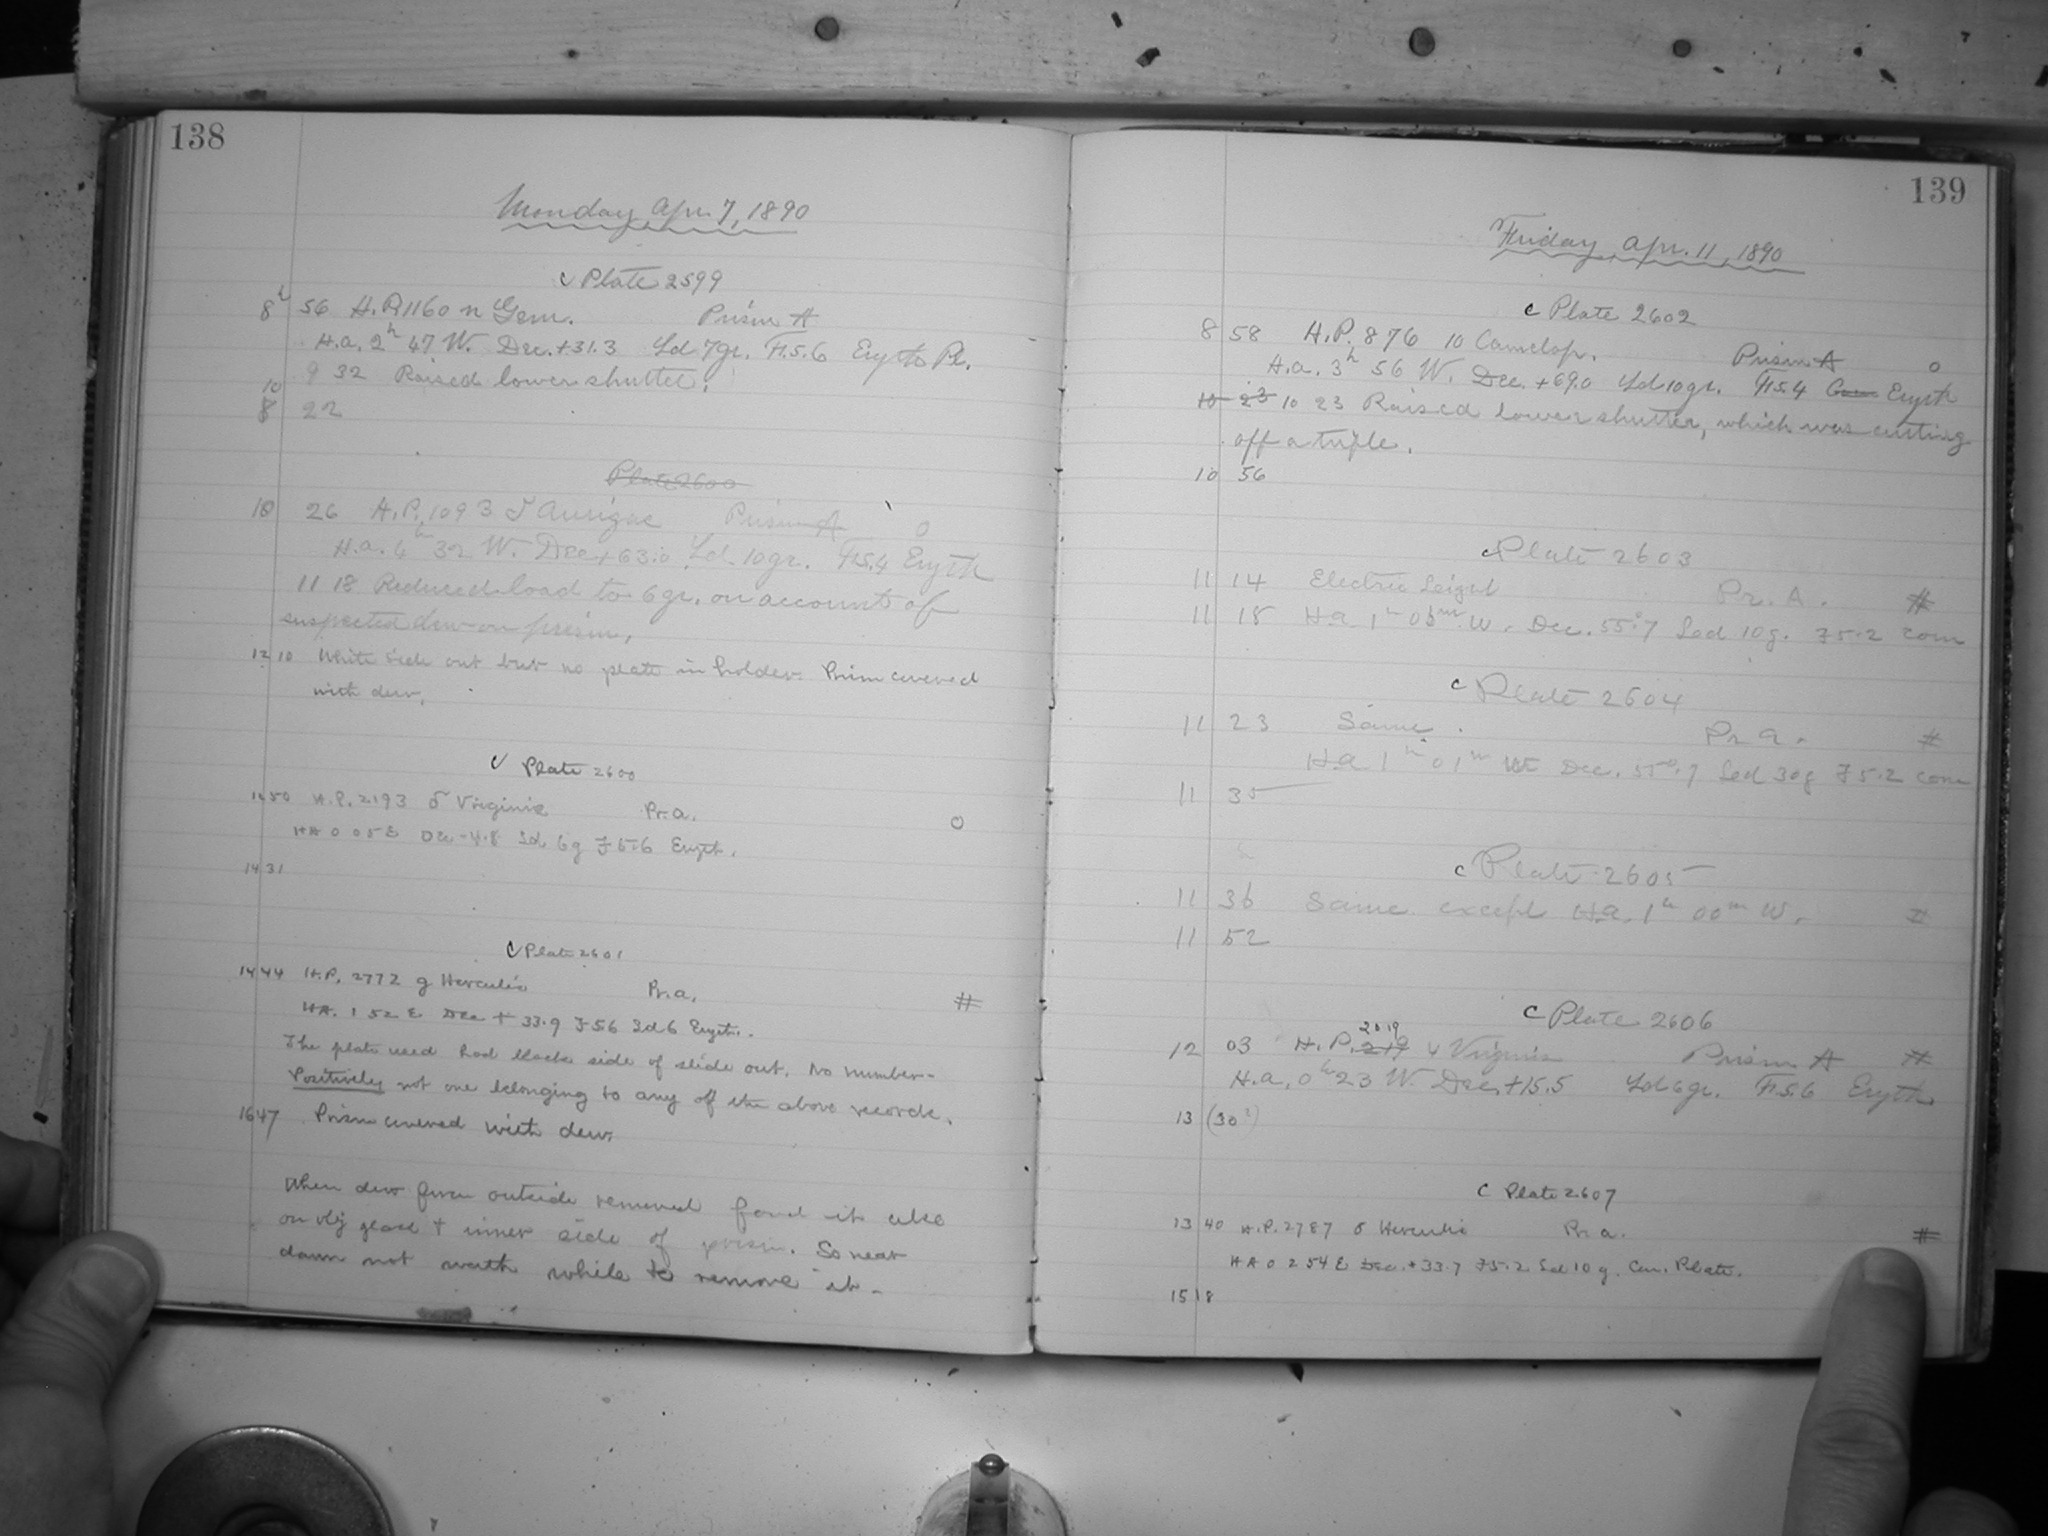 138
Monday, Apr. 7, 1890
c Plate 2599
8h 56 H.P. 1160 n Gem. Prism A
H.a. 2h 47 W. Dec. +31.3 Ld 7gr. F.5.6 Eryth Pl.
9 32 Raised lower shutter.
10
8 22
Plate 2600
10 26 H.P. 1093 Aurigae Prism A O
H.a. 4h 32 W. Dec +63.0 Ld. 10gr. F.5.4 Eryth
11 18 Reduced load to 6gr. on account of
suspected dew on prism.
12 10 White side out but no plate in holder. Prism covered
with dew.
c Plate 2600
12 50 H.P. 2193 Virginis Pr. a. O
HA 0 05 E Dec -4.8 Ld 6g F 5.6 Eryth.
14 31
c Plate 2601
14 44 H.P. 2772 g Herculis Pr. a. #
HA. 1 52 E Dec + 33.9 F 5 6 Ld 6 Eryth.
The plate used had black side of slide out. No number-
Positively not one belonging to any of the above records.
16 47 Prism covered with dew.
When dew from outside removed found it also
on obj glass + inner side of prism. So near
dawn not worth while to remove it-
139
Friday, Apr. 11, 1890
c Plate 2602
8 58 H.P. 876 10 Camelop. Prism A O
H.a. 3h 56 W. Dec. +69.0 Ld 10gr. F.5.4 Eryth
10 23 10 23 Raised lower shutter, which was cutting
off a trifle.
10 56
c Plate 2603
11 14 Electric Light Pr. A. #
11 18 Ha 1h 03m W. Dec. 55°.7 Led 10g. F 5.2 Com
c Plate 2604
11 23 Same. Pr a. #
Ha 1h 01m W Dec. 55°.7 Led 30g F 5.2 com
11 35
c Plate 2605
11 36 Same except Ha. 1h 00m W. #
11 52
c Plate 2606
2019
12 03 H.P. 219 Virginis Prism A #
H.a. 0h 23 W. Dec. +15.5 Ld 6gr. F.5.6 Eryth
13 (30?)
c Plate 2607
13 40 H.P. 2787 Herculis Pr. a. #
HA 0 2 54 E Dec. + 33.7 F 5.2 Led 10 g. Com. Plate.
15 18